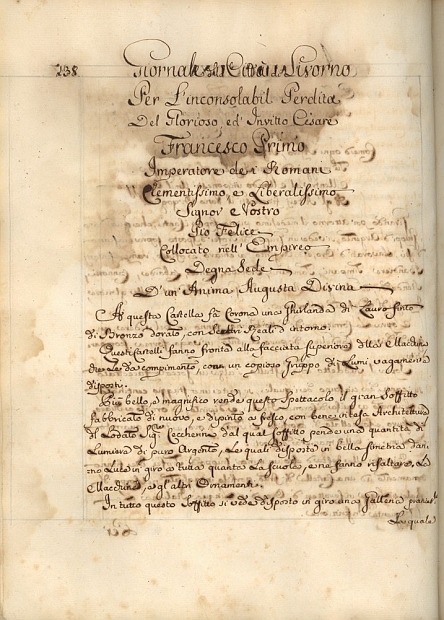 238
Giornale Città Livorno
Per L'inconsolabil Perdita
Del Glorioso, ed' Invitto Cesare
Francesco Primo
Imperatore de i Romani
Clementissimo e Liberalissimo
Signor e Nostro
Pio Felice
Collocato nell' Empireo
Degna Sede
D'un' Anima Augusta Divina
A questa Cartella fà Corona una Ghirlanda di Lauro finto
di Bronzo dorato, con Scettri Reali d'intorno.
Questi Cartelli fanno fronte alla facciata superiore della Macchina
che le da compimento, con un copioso gruppo di Lumi, vagamente
disposti.
Più bello, e magnifico rende questo Spettacolo il gran Soffitto
fabbricato di nuovo, e dipinto a fresco, con bene intesa Architettura
di Lodato Sigr. Cecchenni dal qual Soffitto pende una quantità di
Lumiere di puro Argento, le quali disposte in bella simetria dan:
no Luce in giro a tutta quanta la Scuola, e ne fanno risaltare, la
Macchina, e gl'altri Ornamenti.
In tutto questo Soffitto si vede disposto in giro una Galleria
La quale